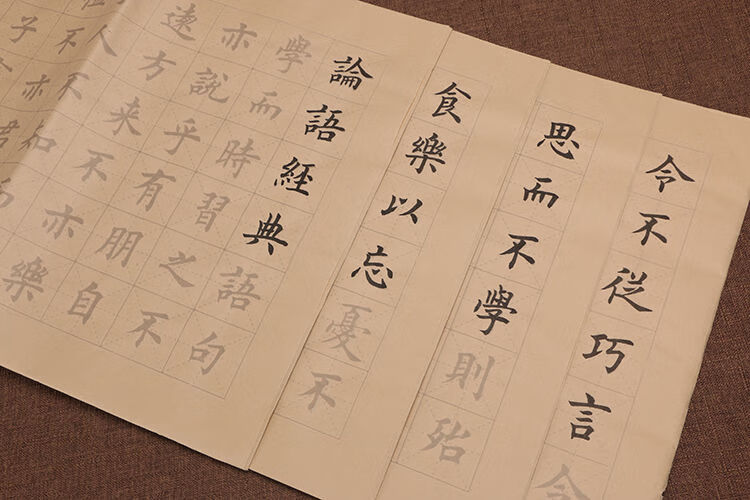 令不從巧言令
思而不學則殆
食樂以忘憂不
論語經典語句
學而時習之不
亦說乎有朋自
遠方来不亦樂
人不知
不亦君
子